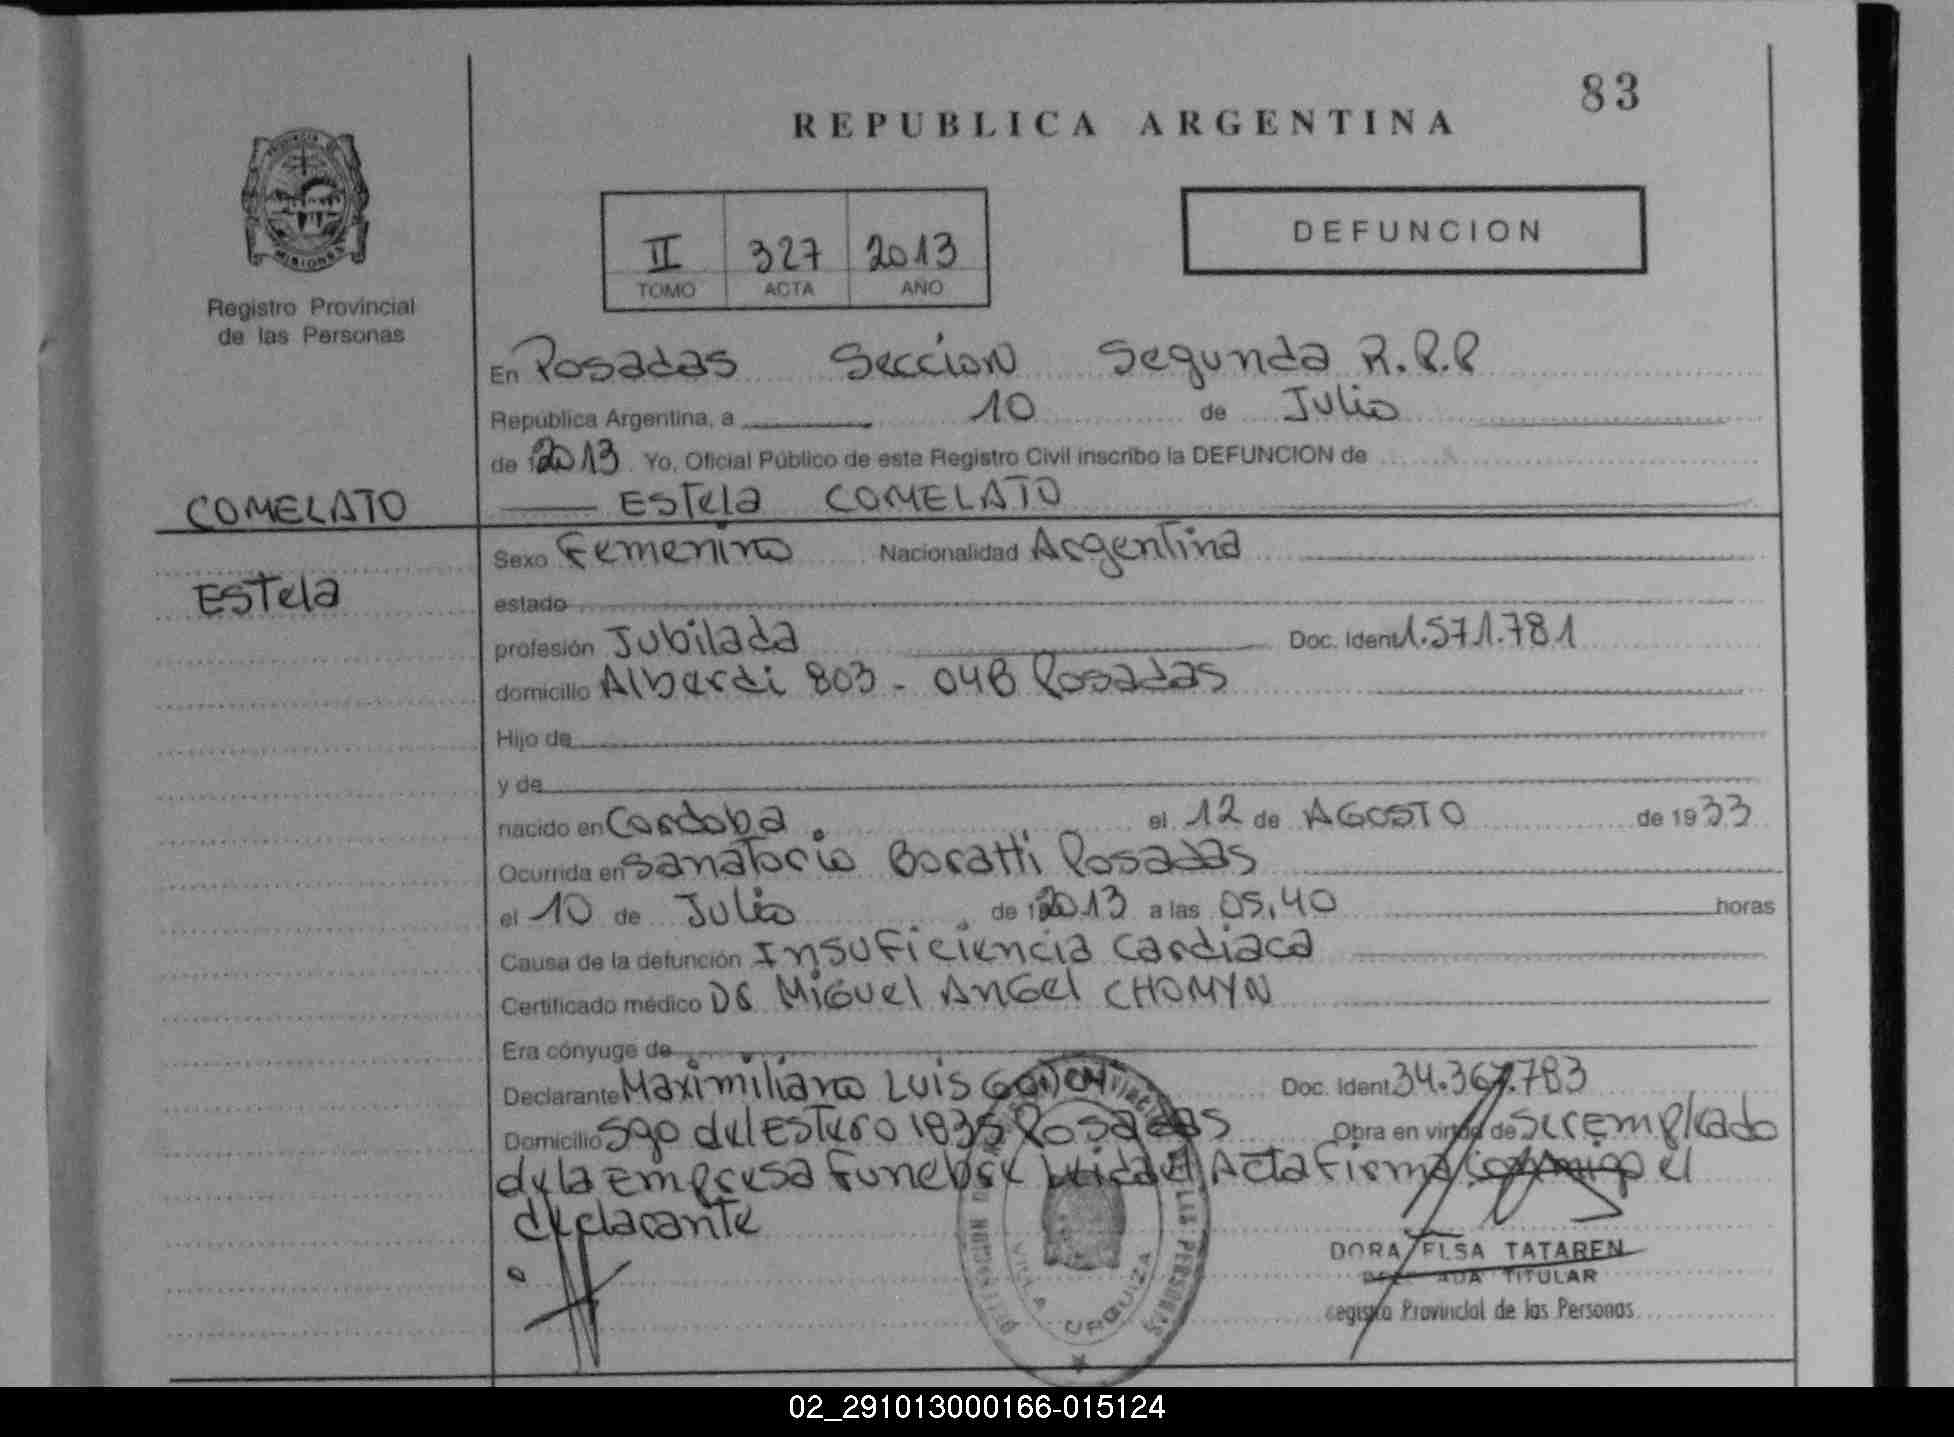 83
REPUBLICA ARGENTINA
PROVINCIA DE
MISIONES
Registro Provincial
de las Personas
II 327 2013
TOMO ACTA AÑO
DEFUNCION
En Posadas Seccion Segunda R.P.P
República Argentina, a 10 de Julio
de 2013 Yo, Oficial Público de este Registro Civil inscribo la DEFUNCION de
COMELATO
Estela COMELATO
Estela
Sexo Femenino Nacionalidad Argentina
estado
profesión Jubilada Doc. Ident 1.571.781
domicilio Alberdi 803 - 04B Posadas
Hijo de
y de
nacido en Cordoba. el 12 de AGOSTO de 1933
Ocurrida en Sanatorio Boratti Posadas
el 10 de Julio de 2013 a las 05,40 horas
Causa de la defunción Insuficiencia Cardiaca
Certificado médico Dr Miguel Angel CHOMYN
Era cónyuge de
Declarante Maximiliano Luis Doc. Ident 34.367.783
Domicilio Sgo del Estero 1835 Posadas Obra en virtud de ser empleado
de la Empresa Funebre Leida el Acta Firma el
declarante
LAS PERSONAS
VILLA URQUIZA
DORA ELSA TATAREN
TITULAR
Registro Provincial de las Personas
02_291013000166-015124